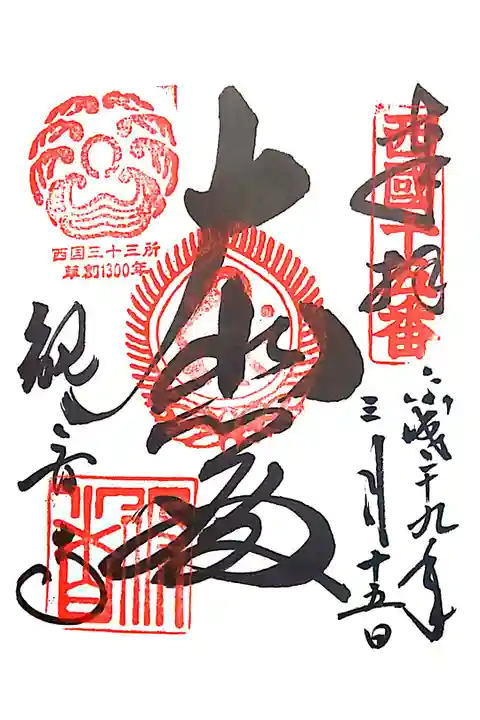 奉拝
西國十五番
平成廿九年
三月十五日
大悲殿
西国三十三所
草創1300年
観音寺